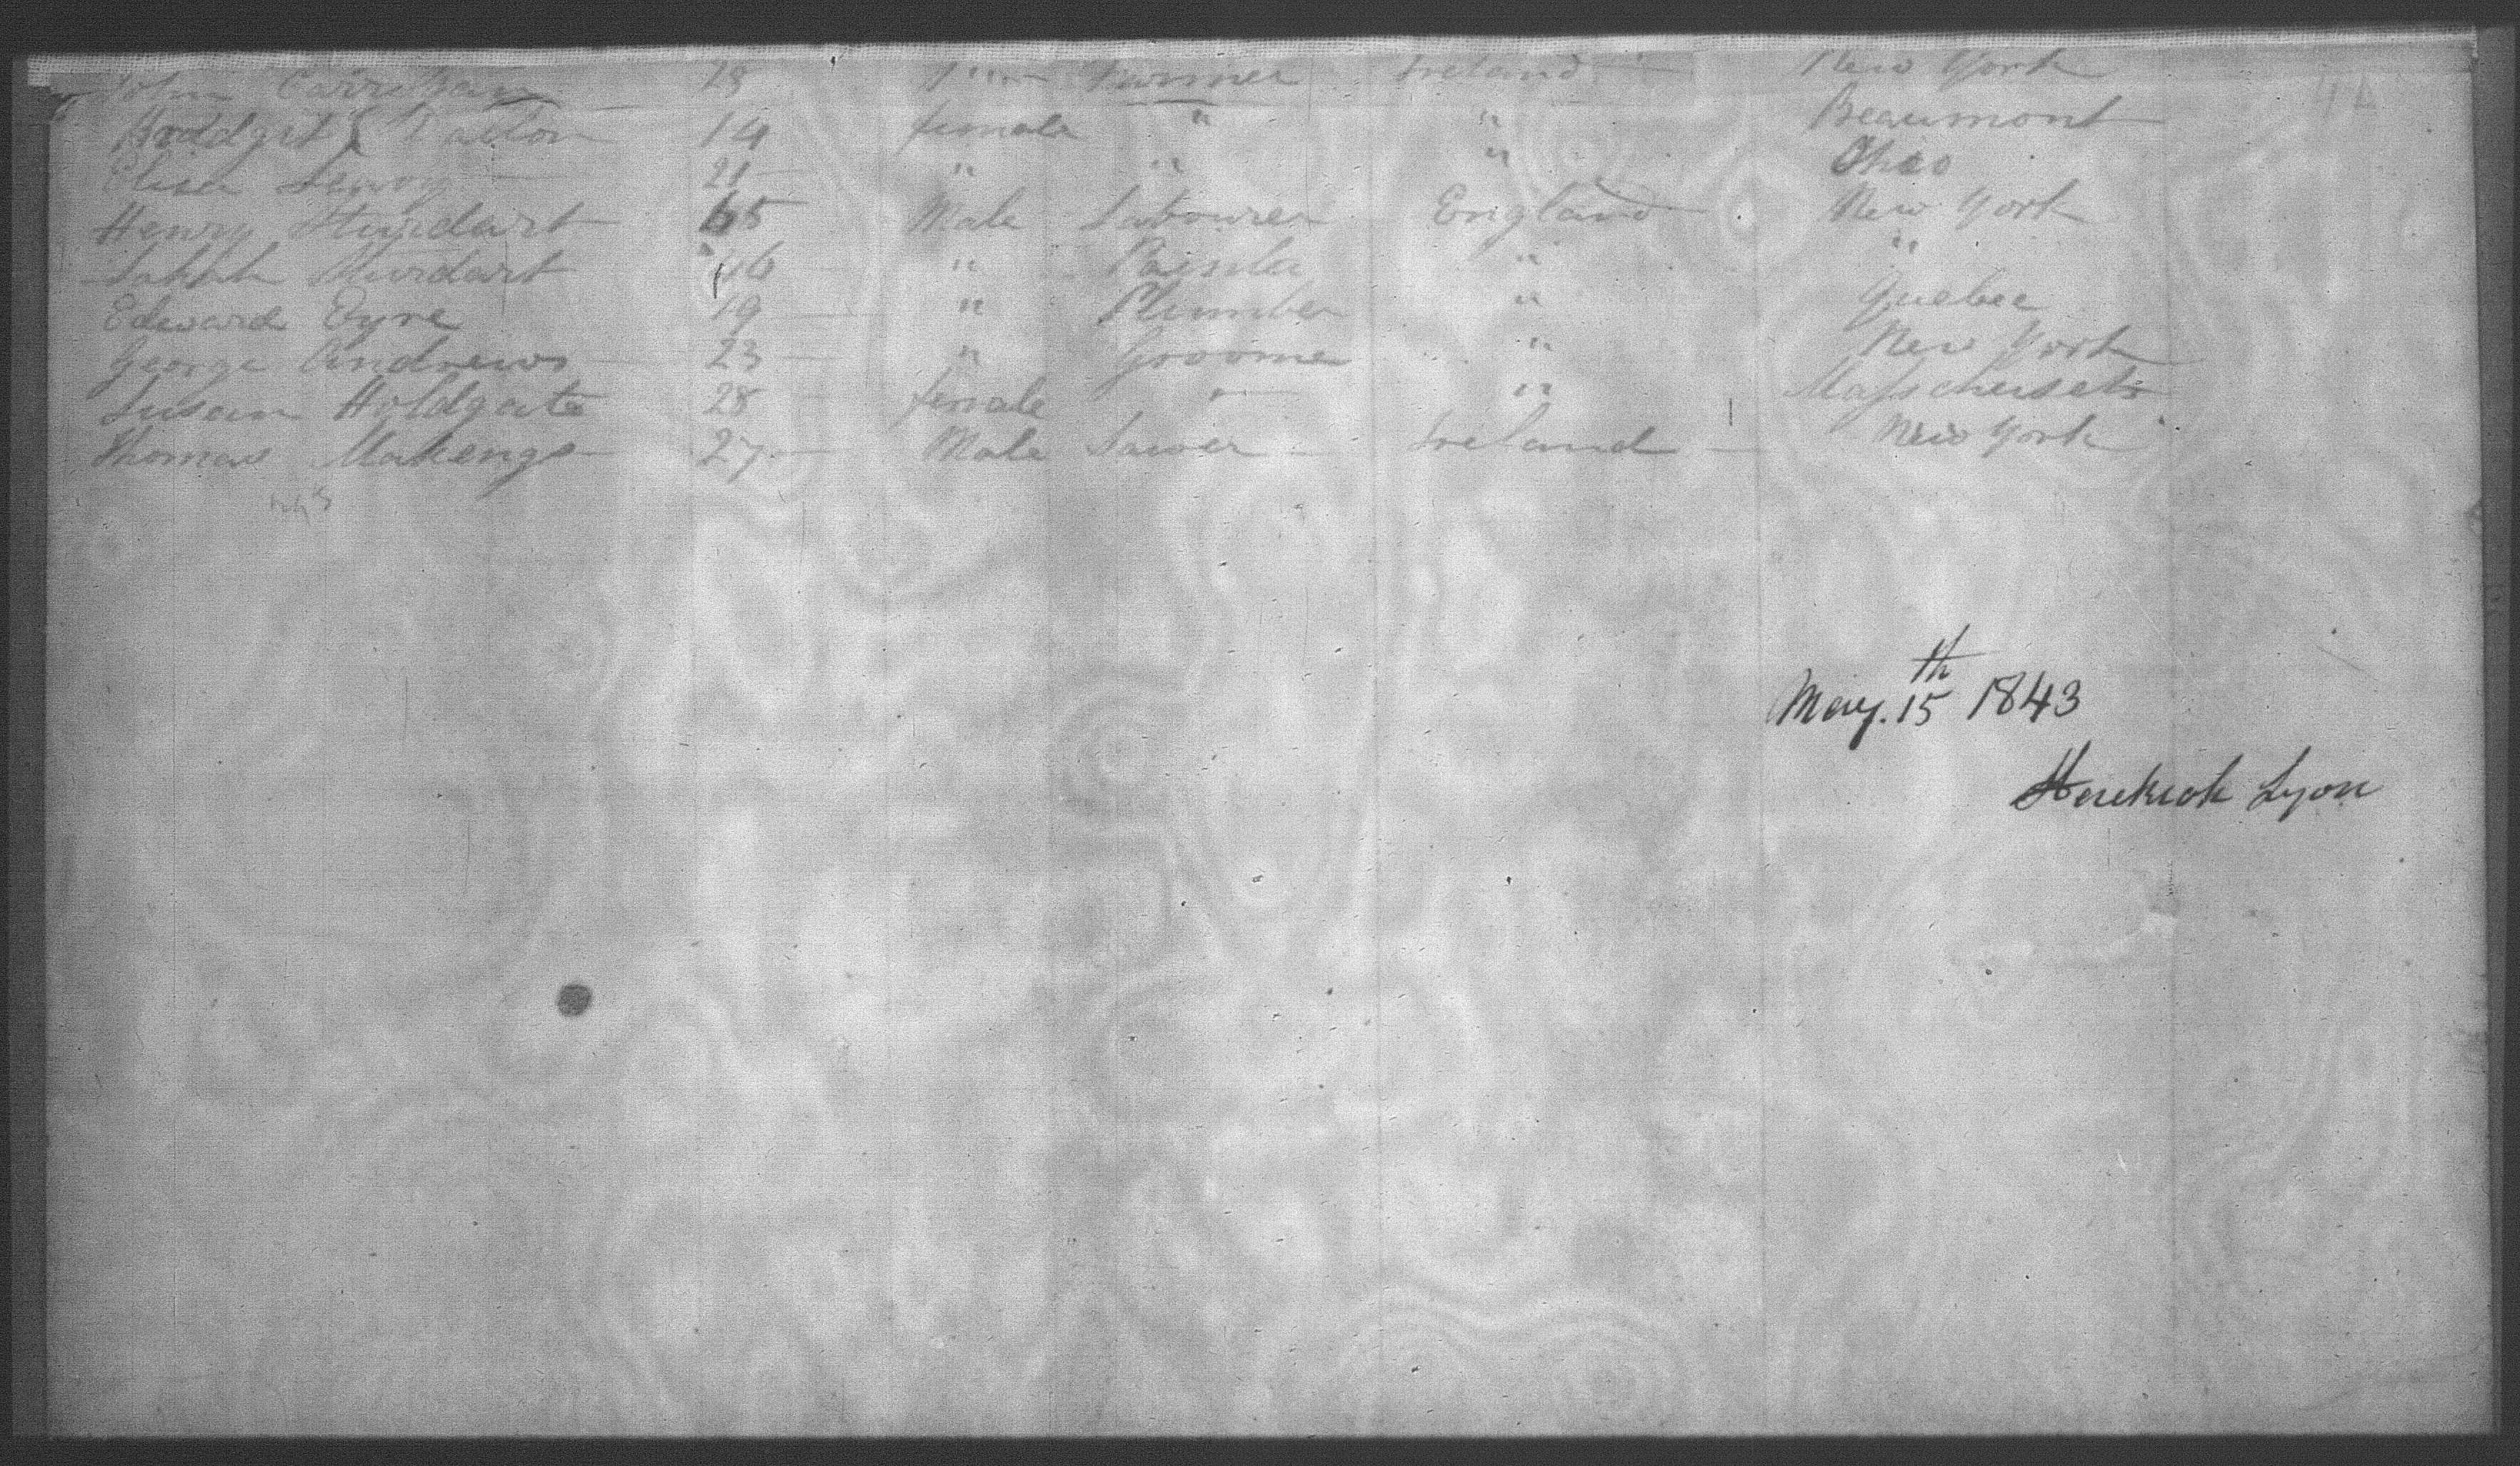 John Carrigan 28 Farmer Ireland New York
Bridget Dalton 14 female " " Beaumont
Eliza 21 " " " Ohio
Henry Sturdart 65 Male Labourer England New York
Sturdart 46 " " "
Edward Eyre 19 " Plumber " Quebec
George Andrews 23 " Groome " New York
Susan Holdgate 28 female " Masschusets
Thomas Makengs 27 Male Sawer Ireland New York
May. 15th 1843
Hezekiah Lyon